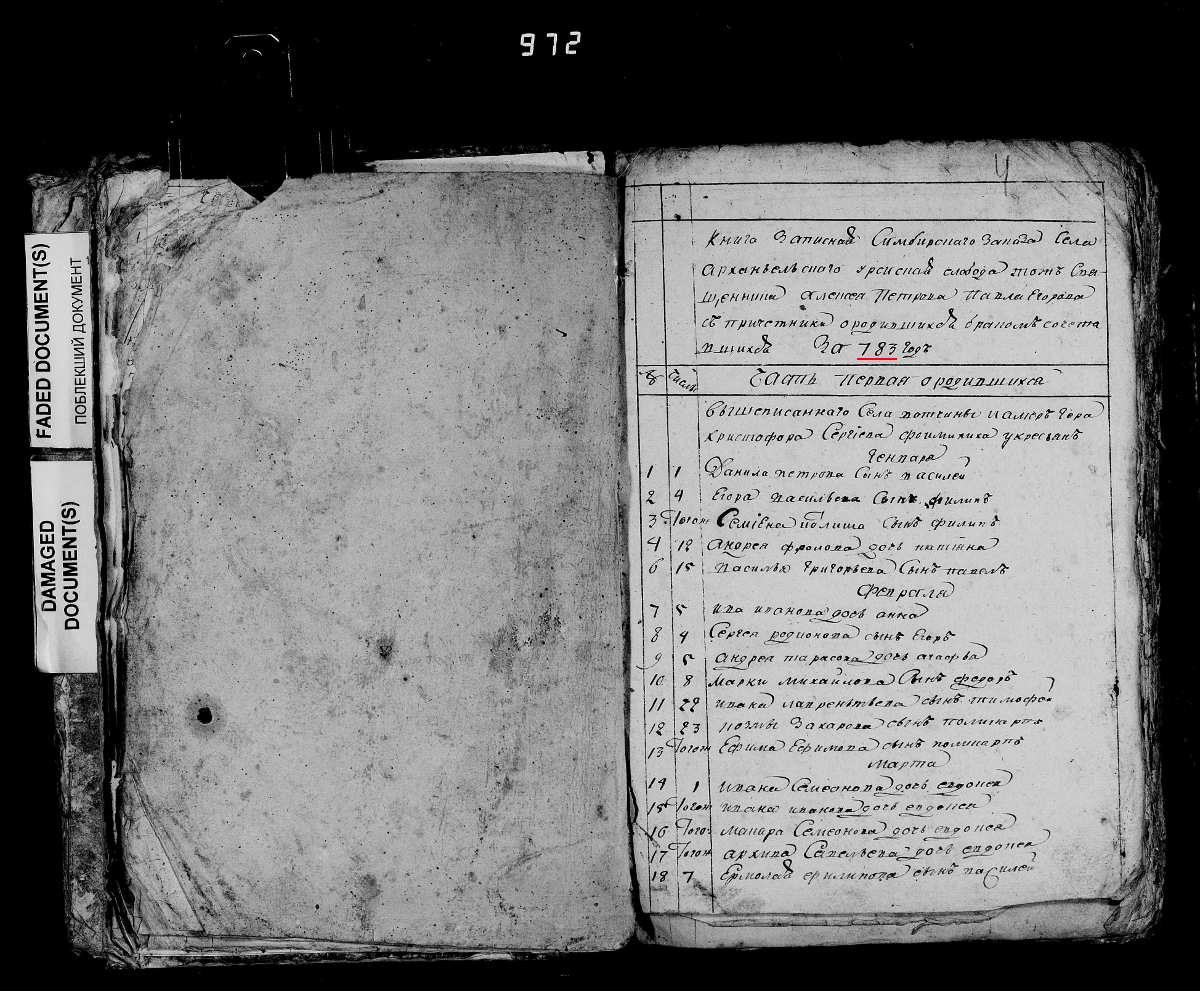 972
FADED DOCUMENT(S)
ПОБЛЕКШИЙ ДОКУМЕНТ
DAMAGED
DOCUMENT(S)
4
Книга Записная Симбирскаго Села
Арханъельскаго слобода тожъ Свя-
щенника алексея Петрова Павла Егорова
съ причетники ородившихся бракомъ сочета
вшихся За 783 годъ
числа Часть первая ородившихся
вышеписаннаго Села вотчины камеръ
христофора Сергіева укрестьянъ
Генваря
1 1 Данила петрова Сынъ василей
2 4 Егора васильева Сынъ филипъ
3 Тогож Семіена Сынъ филипъ
4 12 Андрея фролова дочь татіяна
6 15 василья григорьева Сынъ павелъ
Февраля
7 5 ива иванова дочь анна
8 4 Сергея родионова сынъ Егоръ
9 5 андрея тарасова дочь
10 8 марки михайлова Сынъ федоръ
11 22 ивана лаврентьева сынъ тимофей
12 23 козмы Захарова сынъ поликарпъ
13 Тогож Ефима Ефимова сынъ поликарпъ
марта
14 1 ивана Семеонова дочь евдокея
15 Тогож ивана иванова дочь евдокея
16 Тогож макара Семеонова дочь евдокея
17 Тогож архипа Савельева дочь евдокея
18 7 Ермолая филипова сынъ василей